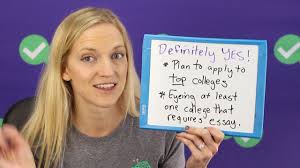 Definitely YES!
* Plan to apply to
TOP colleges
* Eyeing at least
one college that
requires essay.